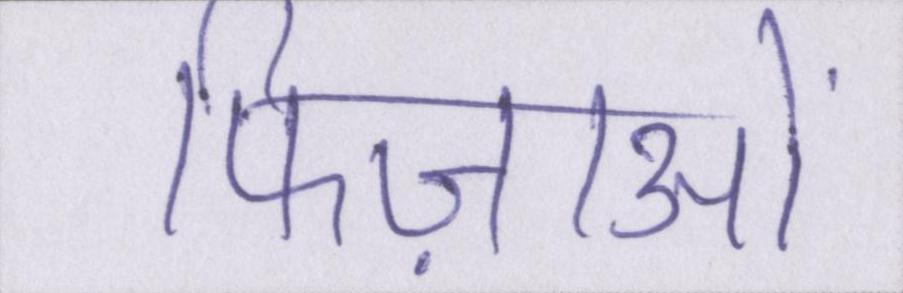 फिज़ाओं